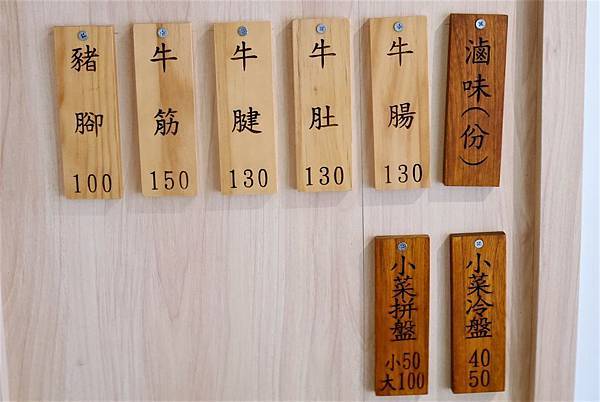 滷味(份)
牛腸
130
牛肚
130
牛腱
130
牛筋
150
豬腳
100
小菜冷盤
40
50
小菜拼盤
小50
大100